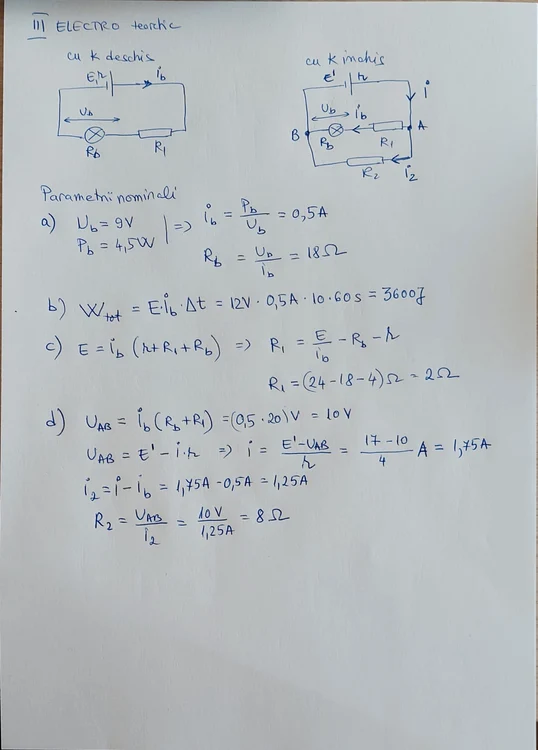 III ELECTRO teoretic
cu k deschis
cu k închis
E, r
i_b
U_b
R_b
R_1
E' r
i
U_b i_b
B
A
R_b
R_1
R_2
i_2
Parametrii nominali
a) U_b = 9V
P_b = 4,5W
=> i_b = P_b/U_b = 0,5A
R_b = U_b/i_b = 18Ω
b) W_tot = E·i_b·Δt = 12V · 0,5A · 10·60s = 3600J
c) E = i_b (r+R_1+R_b) => R_1 = E/i_b - R_b - r
R_1 = (24-18-4)Ω = 2Ω
d) U_AB = i_b (R_b+R_1) = (0,5·20)V = 10V
U_AB = E' - i·r => i = E'-U_AB/r = 17-10/4 A = 1,75A
i_2 = i - i_b = 1,75A - 0,5A = 1,25A
R_2 = U_AB/i_2 = 10V/1,25A = 8Ω